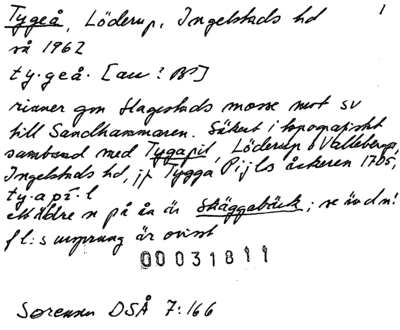 Tygeå, Löderup, Ingelstads hd 1
rå 1962
ty·geå· [au: B]
rinner gm Hagestads mosse mot sv
till Sandhammaren. Säkert i topografiskt
samband med Tygapil, Löderup o Valleberga,
Ingelstads hd, jf Tygga Pijls åckeren 1705,
ty·apí·l
ett äldre n på ån är Skäggabäck; se äv d n!
fl:s ursprung är ovisst
00031811
Sørensen DSÅ 7:166